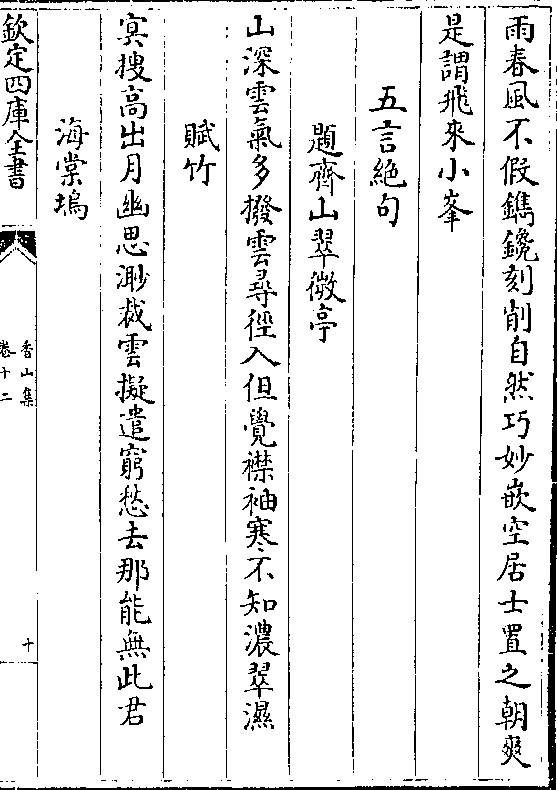 雨春風不假鐫鑱刻削自然巧妙嵌空居士置之朝爽
是謂飛來小峯
五言絶句
題齊山翠微亭
山深雲氣多撥雲尋徑入但覺襟袖寒不知濃翠濕
賦竹
冥搜高出月幽思渺裁雲擬遣窮愁去那能無此君
海棠塢
欽定四庫全書
香山集
卷十二
十